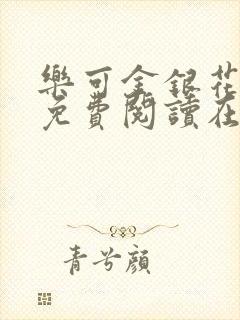 樂可金銀花
免費閱讀在
青兮顏